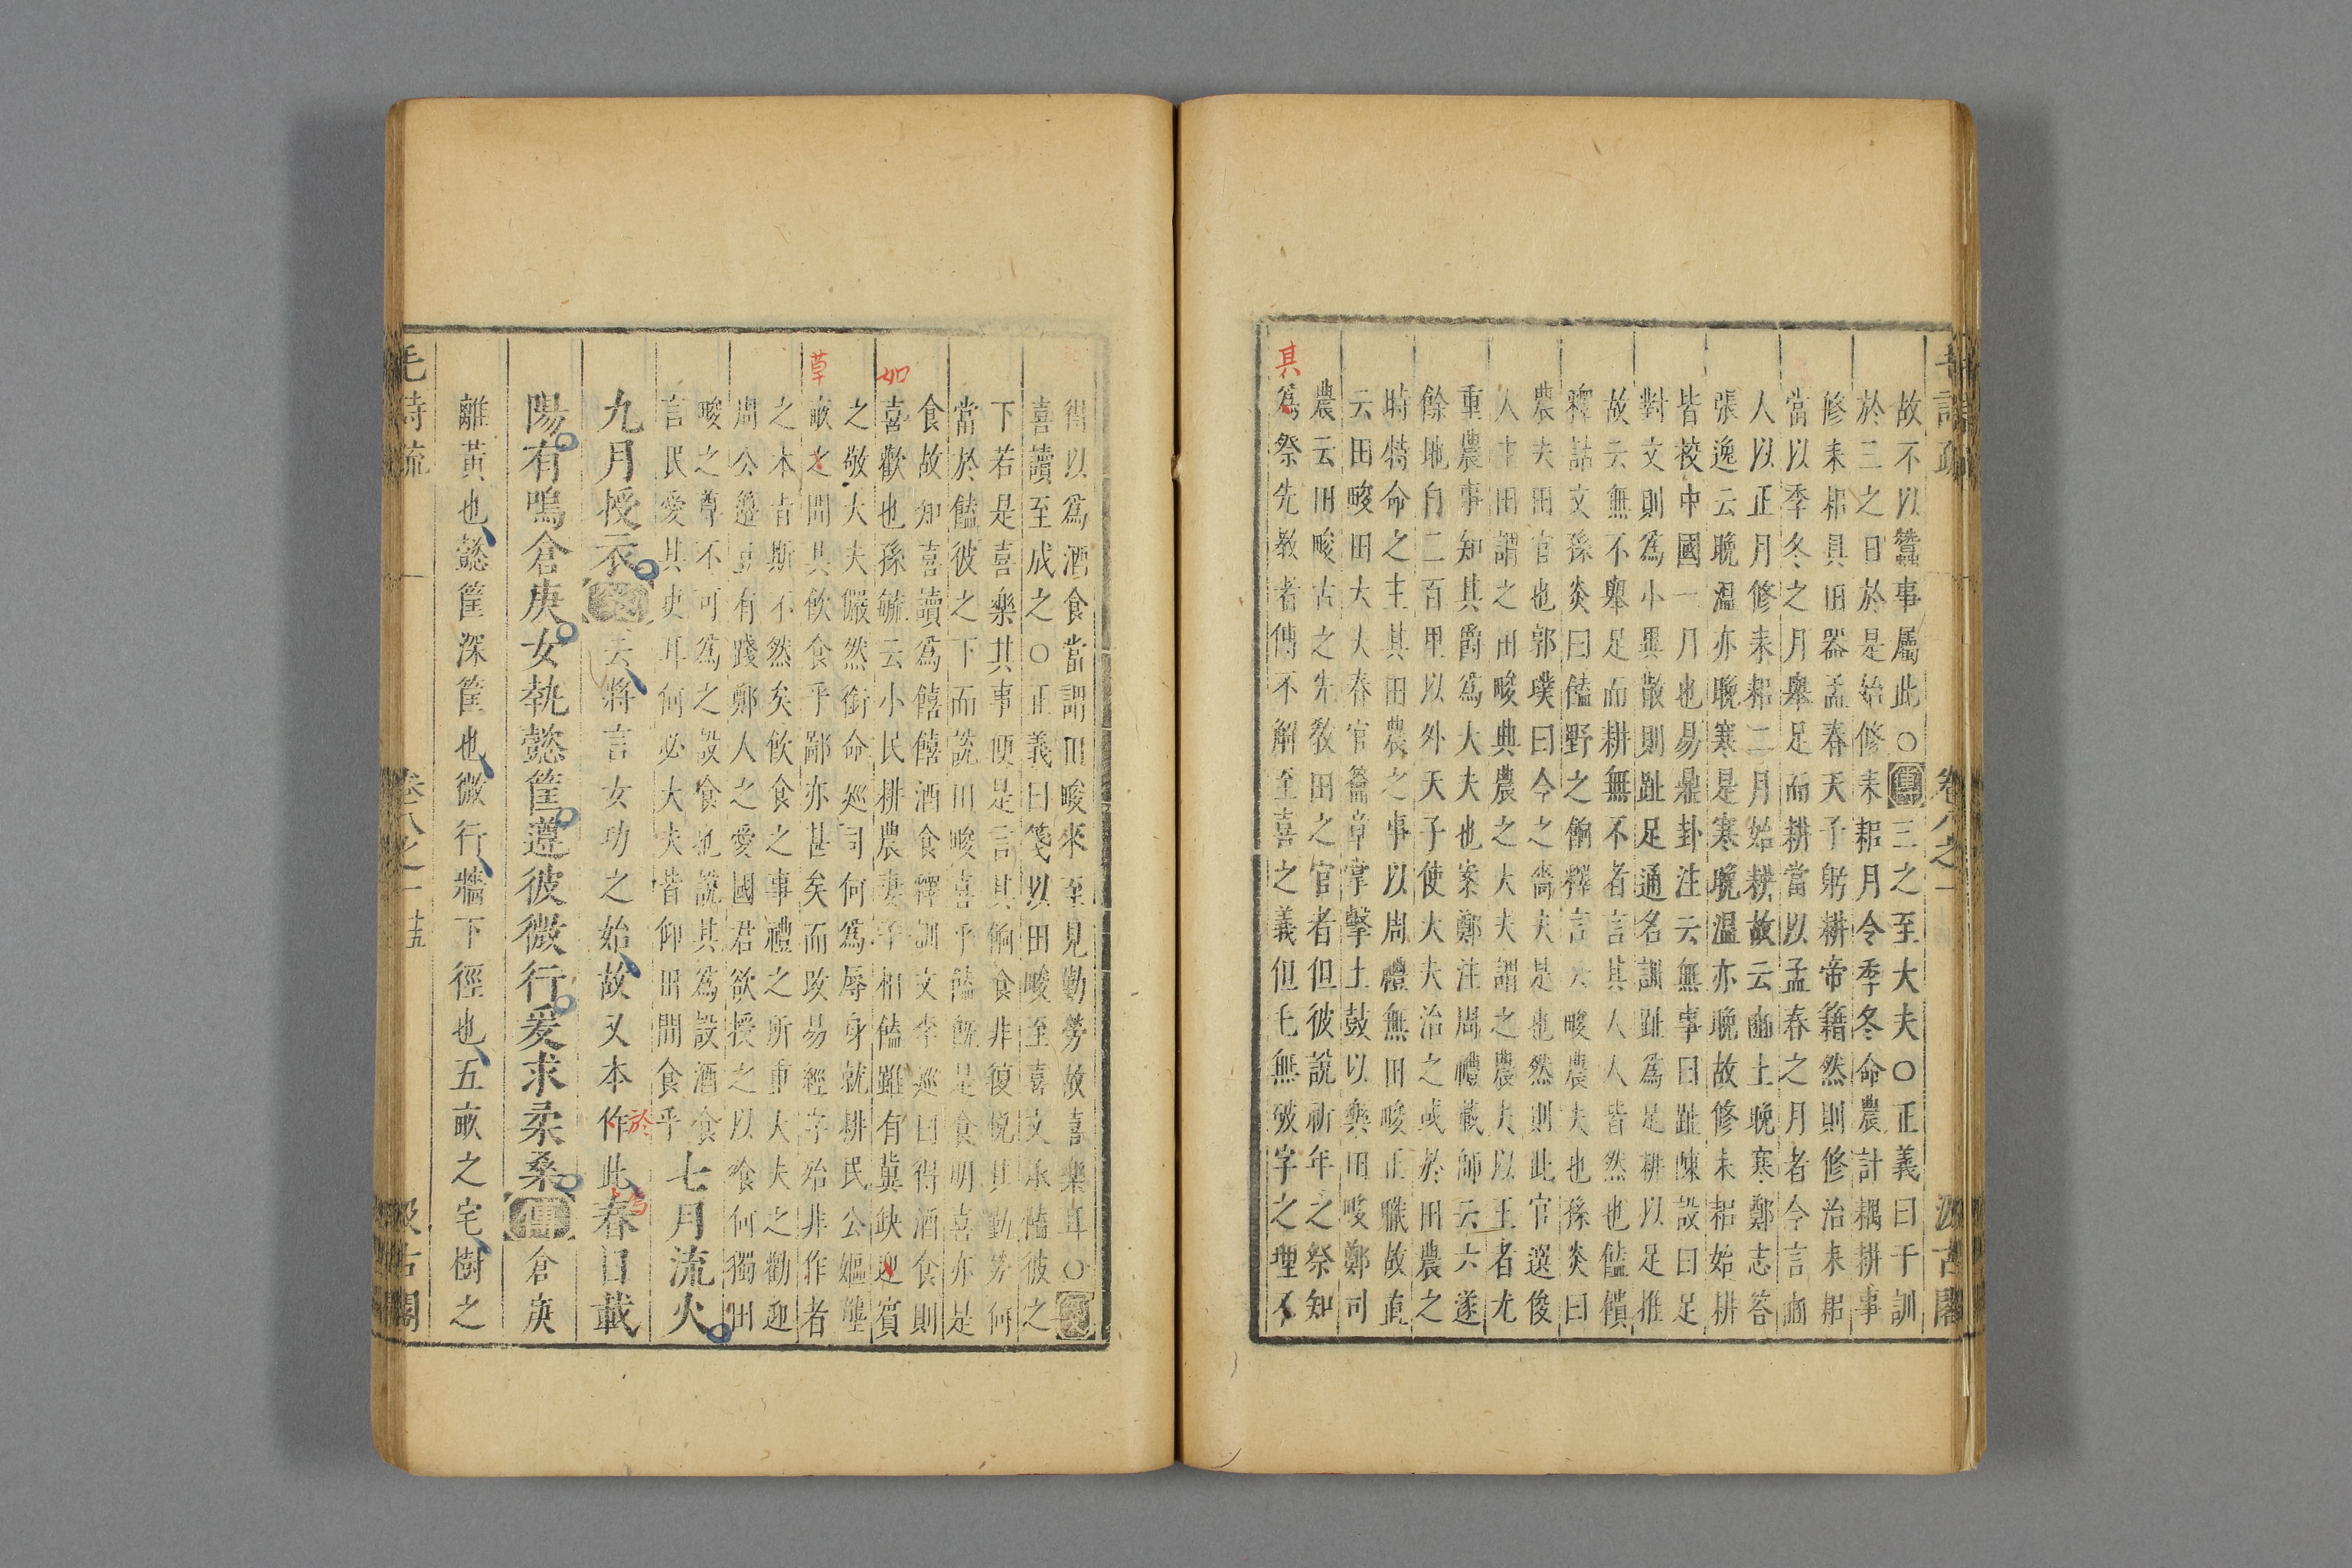 故不以蠶事屬此○傳三之至大夫○正義曰于訓
於三之日於是始修耒耜月令季冬命農計耦耕事
修耒耜具田器孟春天子躬耕帝籍然則修治耒耜
當以季冬之月舉足而耕當以孟春之月者今言豳
人以正月修耒耜二月始耕故云豳土晚寒鄭志答
張逸云晚溫亦晚寒是寒晚溫亦晚故修耒耜始耕
皆校中國一月也易鼎卦注云無事曰趾陳設曰足
對文則為小異散則趾足通名訓趾為足耕以足推
故云無不舉足而耕無不者言其人人皆然也饁饋
釋詁文孫炎曰饁野之餉釋言云畯農夫也孫炎曰
農夫田官也郭璞曰今之嗇夫是也然則此官選俊
人主田謂之田畯典農之大夫謂之農夫以王者尤
重農事知其爵為大夫也案鄭注周禮載師云六遂
餘地自二百里以外天子使大夫治之或於田農之
時特命之主其田農之事以周禮無田畯正職故直
云田畯田大夫春官籥章掌擊土鼓以樂田畯鄭司
農云田畯古之先敎田之官者但彼說祈年之祭知
其
為祭先敎者傳不解至喜之義但毛無破字之理不
毛詩疏 卷八之一 汲古閣
得以為酒食當謂田畯來至見勤勞故喜樂耳○箋
喜讀至成之○正義曰箋以田畯至喜文承饁彼之
下若是喜樂其事便是言其餉食非復悅其勤勞何
當於饁彼之下而說田畯喜乎饁旣是食明喜亦是
食故知喜讀為饎饎酒食釋訓文李巡曰得酒食則
如
喜歡也孫毓云小民耕農妻子相饁雖有冀缺迎賓
之敬大夫儼然銜命巡司何為辱身就耕民公嫗壟
草
畝之間其飲食乎鄙亦甚矣而改易經字殆非作者
之本旨斯不然矣飲食之事禮之所重大夫之勸迎
周公籩豆有踐鄭人之愛國君欲授之以飡何獨田
畯之尊不可為之設食也說其為設酒食
言民愛其吏耳何必大夫皆仰田間食乎
七月流火
九月授衣箋云將言女功之始故又本作此春日載
於
陽有鳴倉庚女執懿筐遵彼微行爰求柔桑傳倉庚
離黃也懿筐深筐也微行牆下徑也五畝之宅樹之
毛詩疏 卷八之一 十五 汲古閣